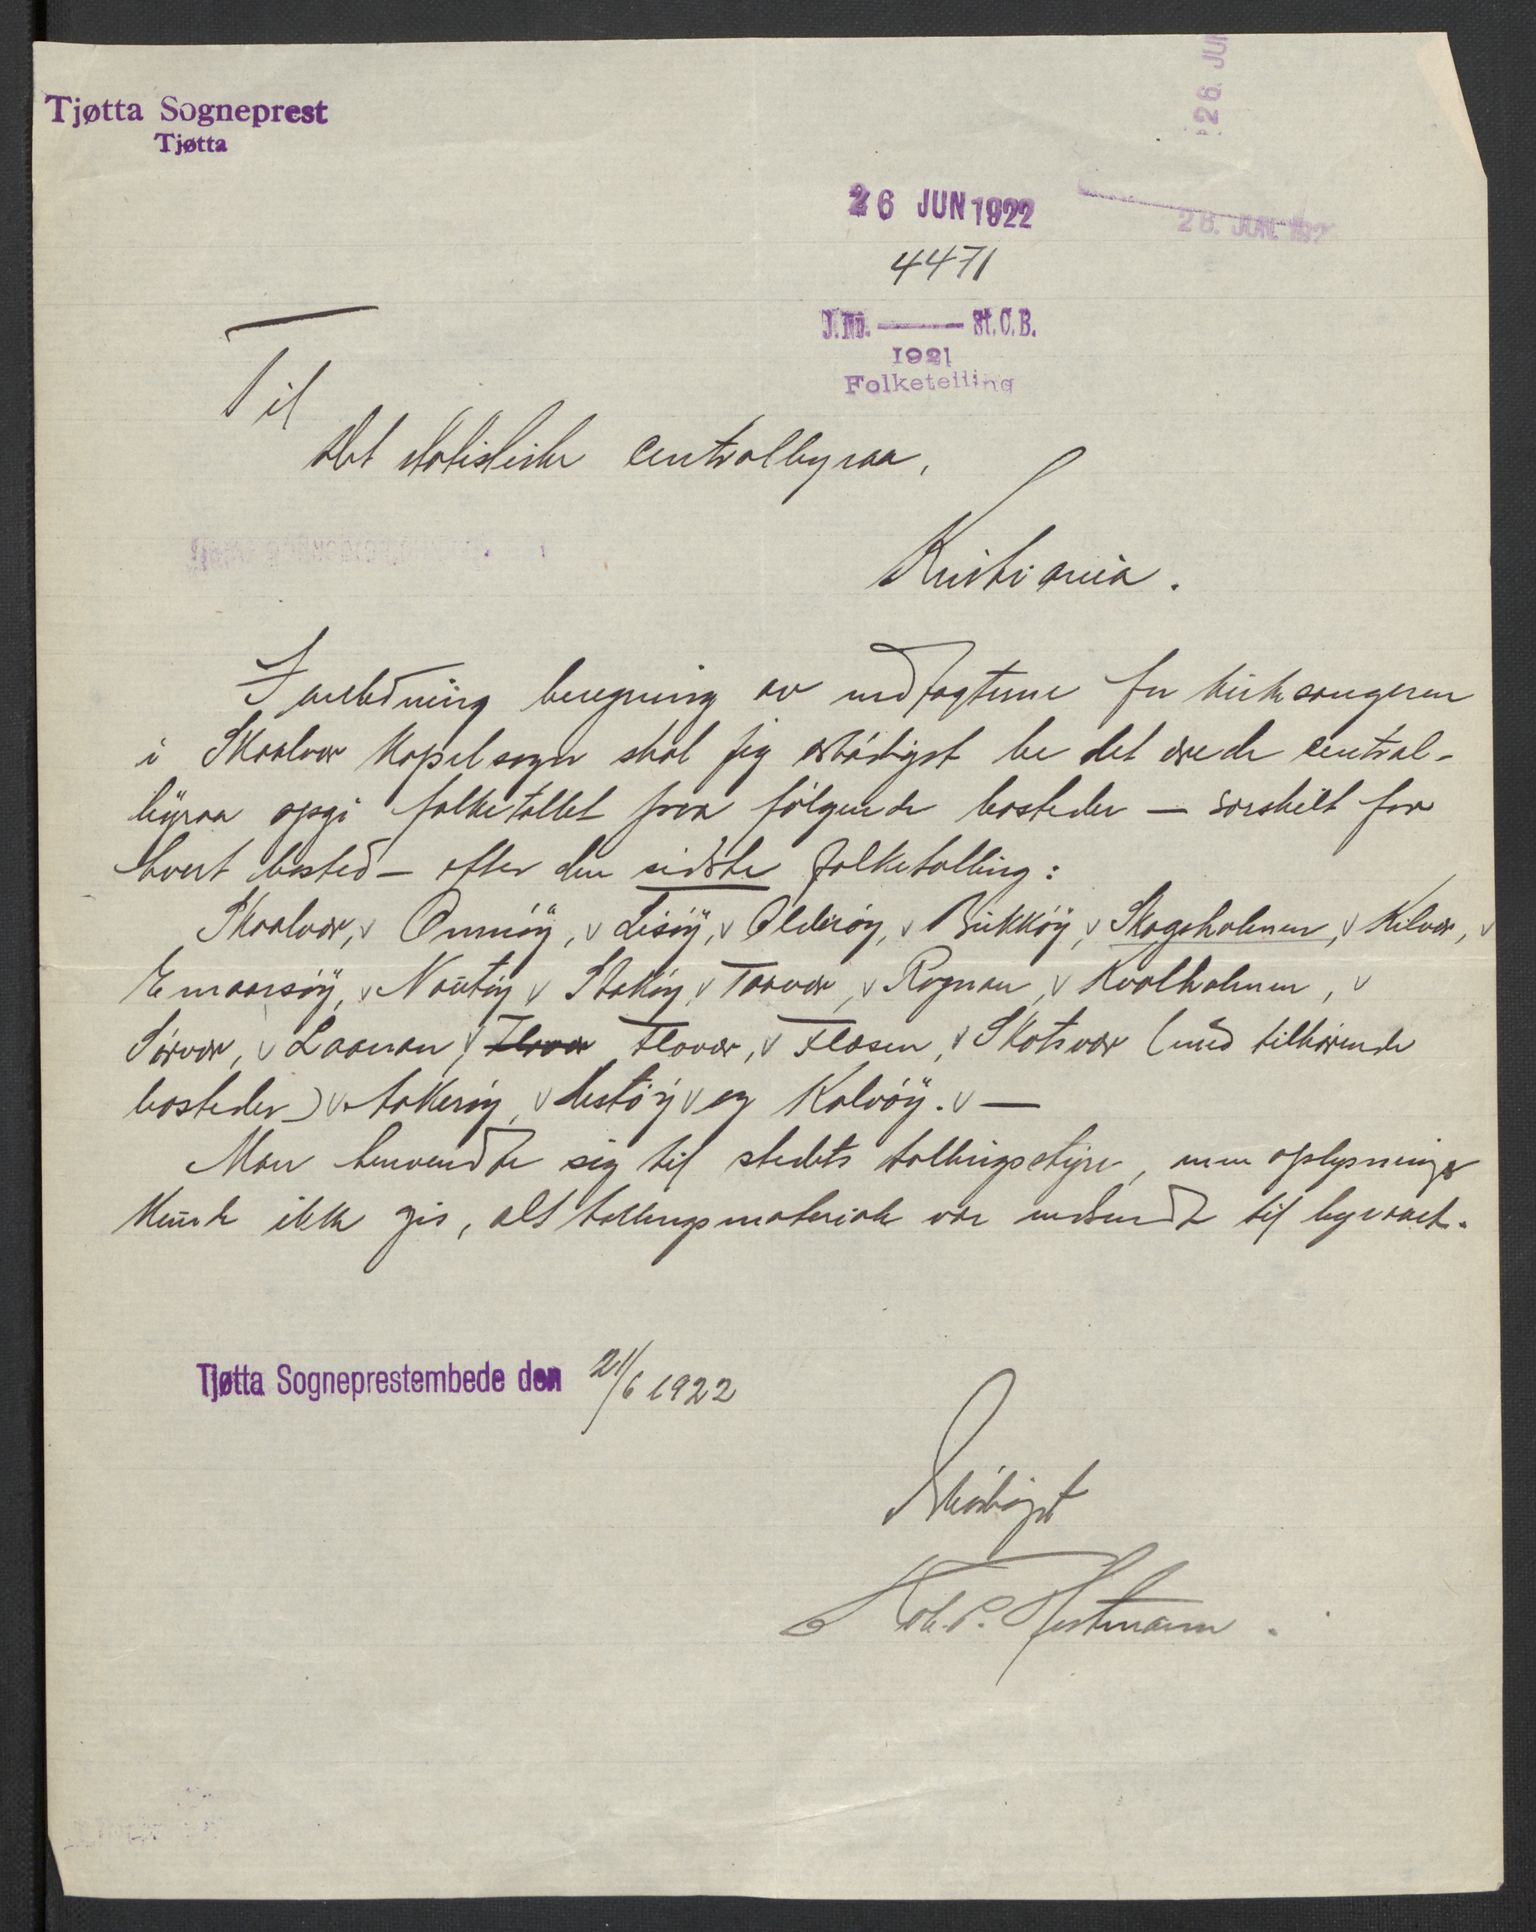 Tjøtta Sogneprest
Tjøtta
26. JUN
26 JUN 1922
26. JUN. 192
4471
J.No. St.C.B.
1921
Folketelling
Til
Det statistiske centralbyraa,
Kristiania.
I anledning beregning av indtægtene for kirkesangeren
i Skaalvær kapelsogn skal jeg ærbødigst be det ærede central-
byraa opgi folketallet paa følgende bosteder — særskilt for
hvert bosted — efter den sidste folketælling:
Skaalvær, v Ommøy, v Tisøy, v Alderøy, v Bukkøy, v Skogsholmen, v Kilvær, v
Emaarsøy, v Nautøy v Stokøy, v Taavær, v Rognan, v Kvalholmen, v
Sørvær, v Laanan, v Flovær Flovær, v Flæsen, v Skotsvær (med tilhørende
bosteder) v Akerøy, v Hestøy v og Kalvøy. v —
Man henvendte sig til stedets tællingsstyre, men oplysninger
kunde ikke gis, alt tællingsmateriale var indsendt til byraaet.
Tjøtta Sogneprestembede den 21/6 1922
Ærbødigst
Joh. P. Hestmann.